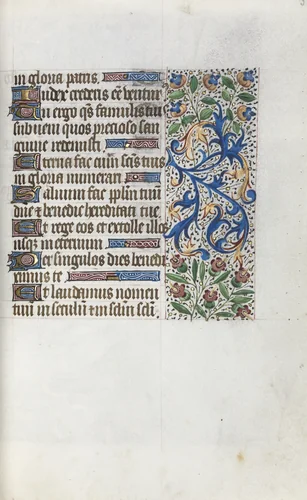 in gloria patris.
Iudex crederis eē ventur
Te ergo qs famulis tui
subveni quos precioso san
guine redemisti
Eterna fac cum scīs tuis
in gloria numerari
Salvum fac pplm tuū
dn̄e et benedic hereditati tue
Et rege eos et extolle illos
usque in eternum
Per singulos dies benedi
cimus te
Et laudamus nomen
tuū in seculū et in sclm scl̄i